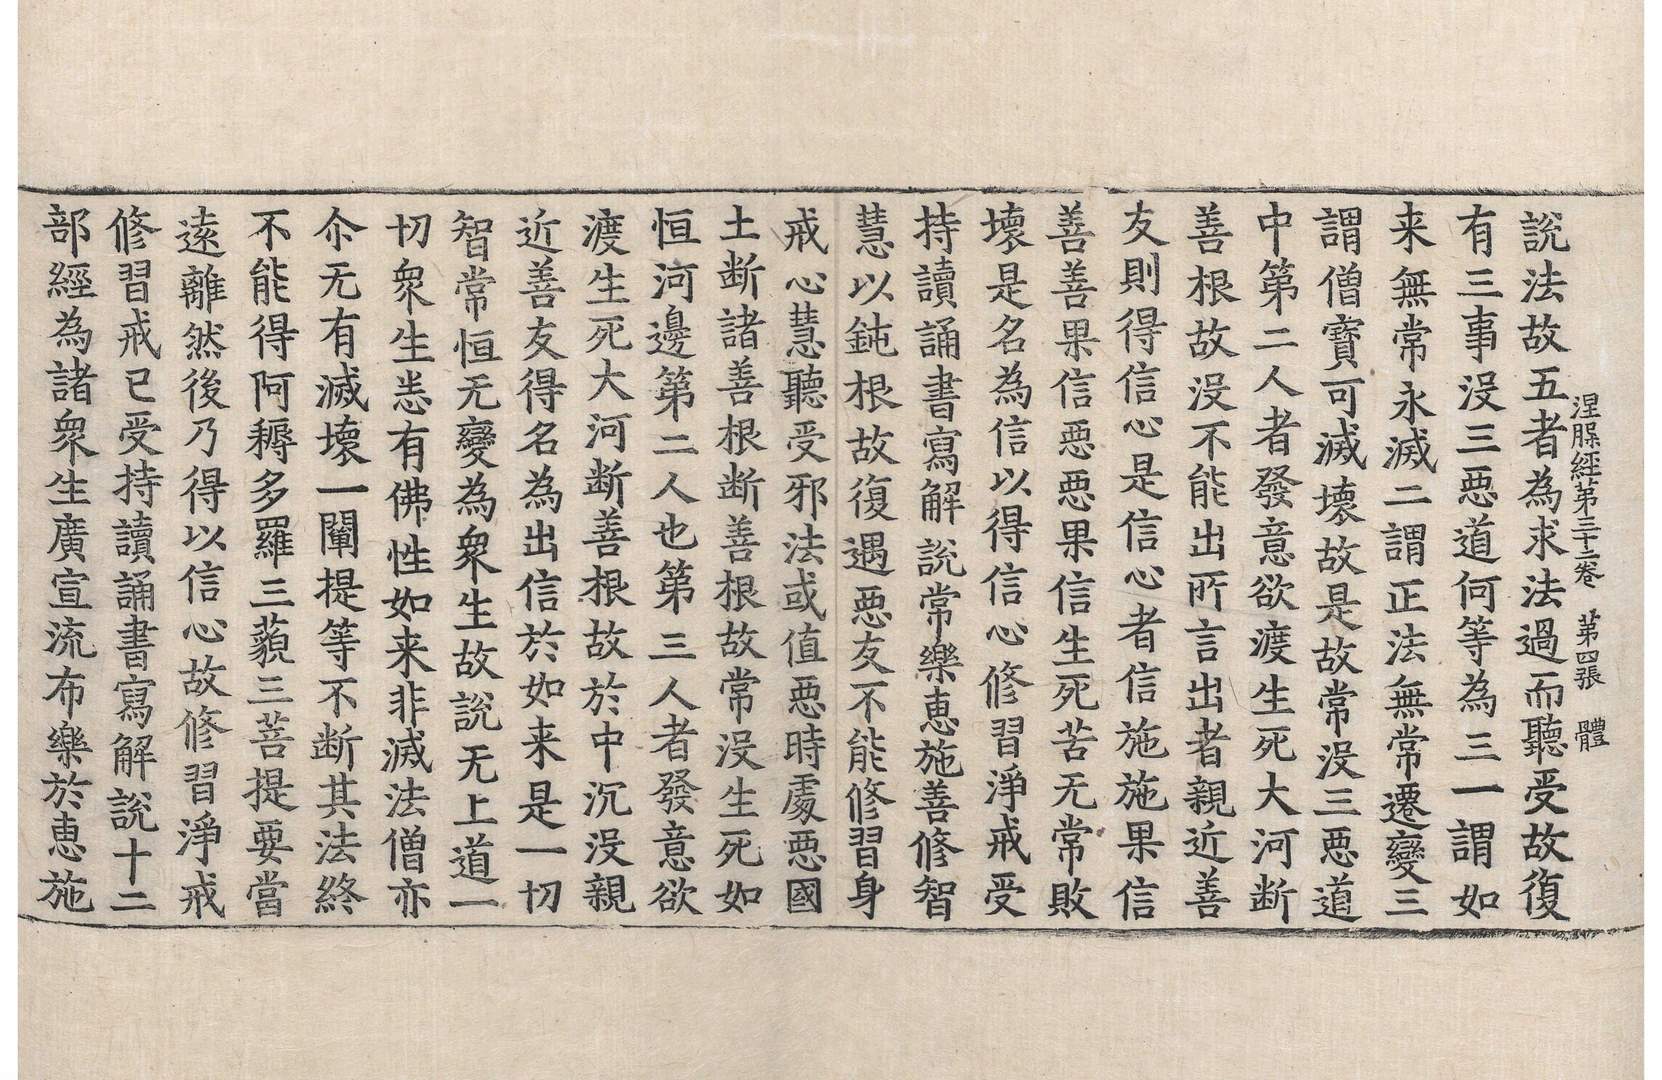 涅槃經第三十二卷　第四張　體
說法故五者為求法過而聽受故復
有三事没三惡道何等為三一謂如
来無常永滅二謂正法無常遷變三
謂僧寶可滅壞故是故常没三惡道
中第二人者發意欲渡生死大河断
善根故没不能出所言出者親近善
友則得信心是信心者信施施果信
善善果信惡惡果信生死苦无常敗
壞是名為信以得信心修習淨戒受
持讀誦書寫解說常樂惠施善修智
慧以鈍根故復遇惡友不能修習身
戒心慧聽受邪法或值惡時處惡國
土断諸善根断善根故常没生死如
恒河邊第二人也第三人者發意欲
渡生死大河断善根故於中沉没親
近善友得名為出信於如来是一切
智常恒无變為衆生故說无上道一
切衆生悉有佛性如来非滅法僧亦
尒无有滅壞一闡提等不断其法終
不能得阿耨多羅三藐三菩提要當
遠離然後乃得以信心故修習淨戒
修習戒已受持讀誦書寫解說十二
部經為諸衆生廣宣流布樂於惠施